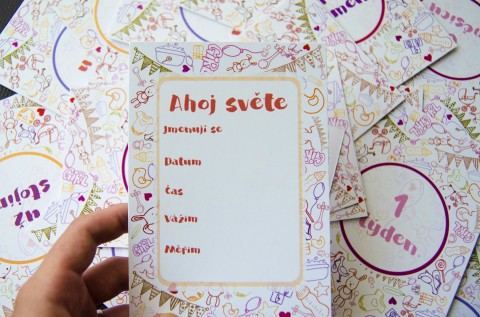 Ahoj světe
Jmenuji se
Datum
Čas
Vážím
Měřím
už
stojím
1
týden